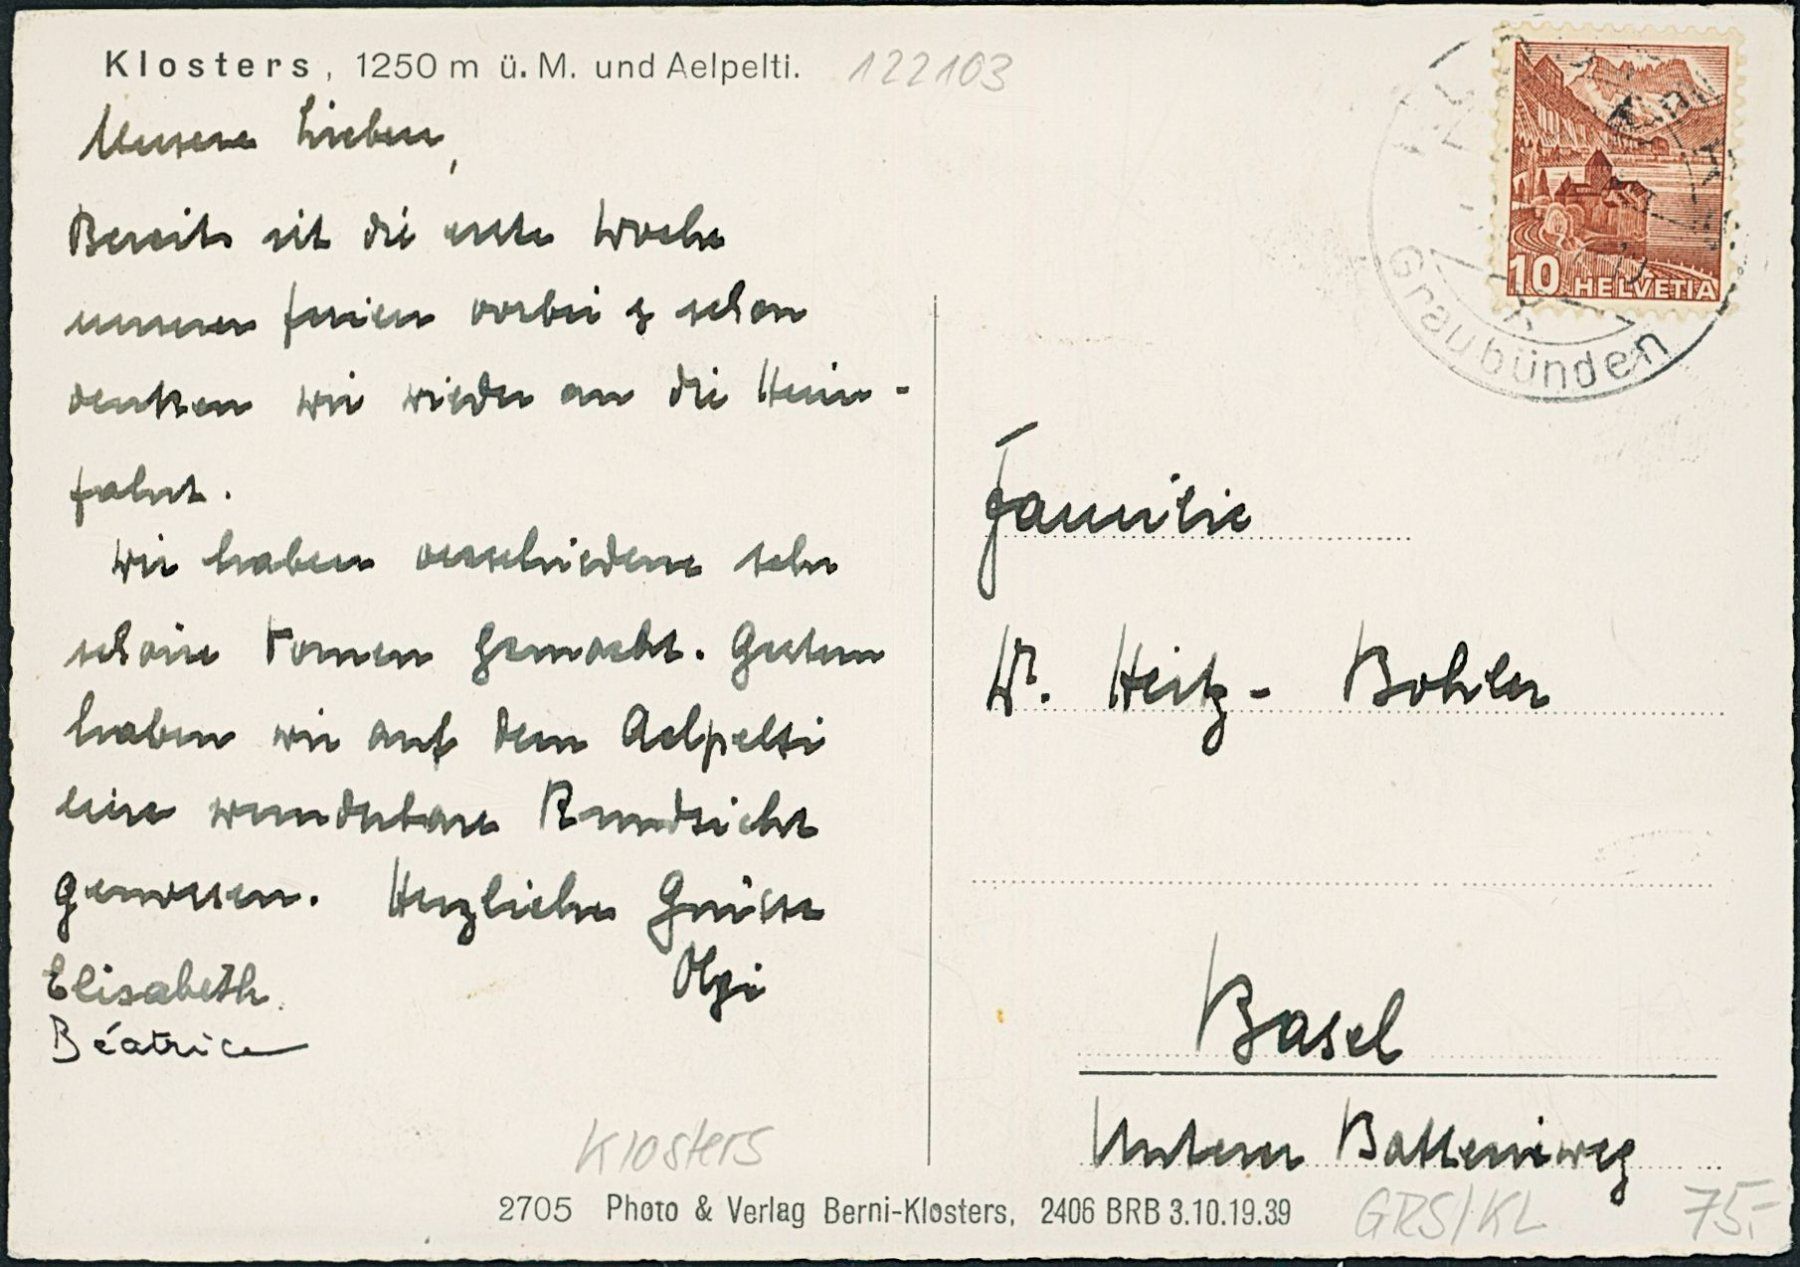 Klosters, 1250 m ü. M. und Aelpelti.
122103
Unsere Lieben,
Bereits ist die erste Woche
unserer Ferien vorbei & schon
denken wir wieder an die Heim-
fahrt.
Wir haben verschiedene sehr
schöne Touren gemacht. Gestern
haben wir auf dem Aelpelti
eine wunderbare Rundsicht
genossen. Herzliche Grüsse
Olgi
Elisabeth.
Béatrice
Graubünden
10 HELVETIA
Familie
W. Heitz - Bohler
Basel
Unterer Batterieweg
Klosters
2705 Photo & Verlag Berni-Klosters, 2406 BRB 3.10.19.39
GRS/KL
75.-